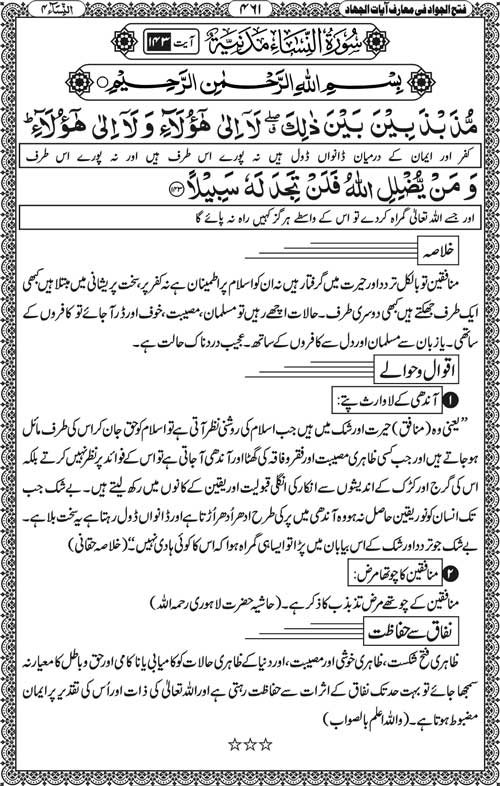 فتح الجواد فی معارف آیات الجهاد ۴۶۱ النسآء ۴
سُوْرَةُ النِّسَآءِ مَدَنِيَّةٌ آیت ۱۴۳
بِسْمِ اللهِ الرَّحْمٰنِ الرَّحِيْمِ
مُّذَبْذَبِيْنَ بَيْنَ ذٰلِكَ ۖ لَاۤ اِلٰى هٰۤؤُلَآءِ وَلَاۤ اِلٰى هٰۤؤُلَآءِ ؕ
کفر اور ایمان کے درمیان ڈانواں ڈول ہیں نہ پورے اس طرف ہیں اور نہ پورے اس طرف
وَ مَنْ يُّضْلِلِ اللهُ فَلَنْ تَجِدَ لَهٗ سَبِيْلًا ﴿۱۴۳﴾
اور جسے اللہ تعالیٰ گمراہ کر دے تو اس کے واسطے ہرگز کہیں راہ نہ پائے گا
خلاصہ
منافقین تو بالکل تردد اور حیرت میں گرفتار ہیں نہ ان کو اسلام پر اطمینان ہے نہ کفر پر، سخت پریشانی میں مبتلا ہیں کبھی
ایک طرف جھکتے ہیں کبھی دوسری طرف۔ حالات اچھے رہیں تو مسلمان، مصیبت، خوف اور ڈر آ جائے تو کافروں کے
ساتھی۔ یا زبان سے مسلمان اور دل سے کافروں کے ساتھ۔ عجیب دردناک حالت ہے۔
اقوال و حوالے
۱ آندھی کے لاوارث پتے:
”یعنی وہ (منافق) حیرت اور شک میں ہیں جب اسلام کی روشنی نظر آتی ہے تو اسلام کو حق جان کر اس کی طرف مائل
ہو جاتے ہیں اور جب کسی ظاہری مصیبت اور فقر و فاقہ کی گھٹا اور آندھی آ جاتی ہے تو اس کے فوائد پر نظر نہیں کرتے بلکہ
اس کی گرج اور کڑک کے اندیشوں سے انکار کی انگلی قبولیت اور یقین کے کانوں میں رکھ لیتے ہیں۔ بے شک جب
تک انسان کو نور یقین حاصل نہ ہو وہ آندھی میں پر کی طرح ادھر اُدھر اُڑتا ہے اور ڈانواں ڈول رہتا ہے یہ سخت بلا ہے۔
بے شک جو تردد اور شک کے اس بیابان میں پڑا تو ایسا ہی گمراہ ہوا کہ اس کا کوئی ہادی نہیں۔“ (خلاصہ حقانی)
۲ منافقین کا چوتھا مرض:
منافقین کے چوتھے مرض تذبذب کا ذکر ہے۔ (حاشیہ حضرت لاہوری رحمہ اللہ)
نفاق سے حفاظت
ظاہری فتح شکست، ظاہری خوشی اور مصیبت، اور دنیا کے ظاہری حالات کو کامیابی یا ناکامی اور حق و باطل کا معیار نہ
سمجھا جائے تو بہت حد تک نفاق کے اثرات سے حفاظت رہتی ہے اور اللہ تعالیٰ کی ذات اور اُس کی تقدیر پر ایمان
مضبوط ہوتا ہے۔ (واللہ اعلم بالصواب)
☆☆☆